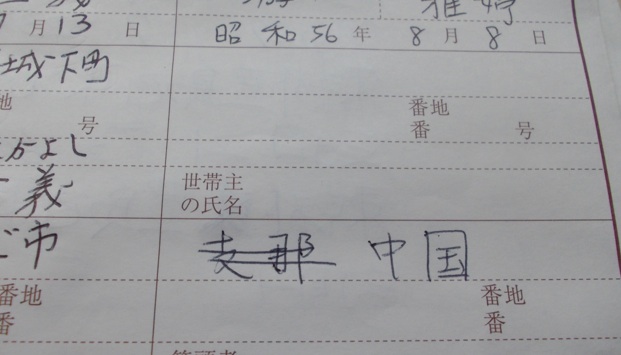 雅婷
月 13 日 昭和 56 年 8 月 8 日
城下町
番地
号 番地
番 号
かよし
義 世帯主
の氏名
市 支那 中国
番地 番地
番 番